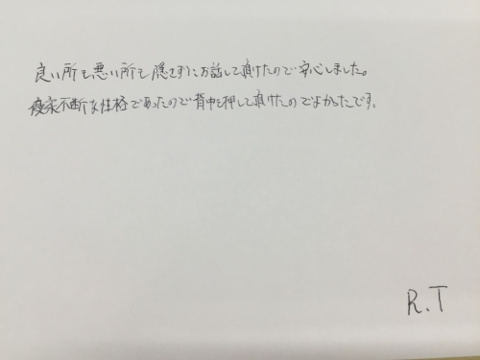 良い所も悪い所も隠さずにお話して頂けたので安心しました。
優柔不断な性格であったので背中を押して頂けたのでよかったです。
R.T